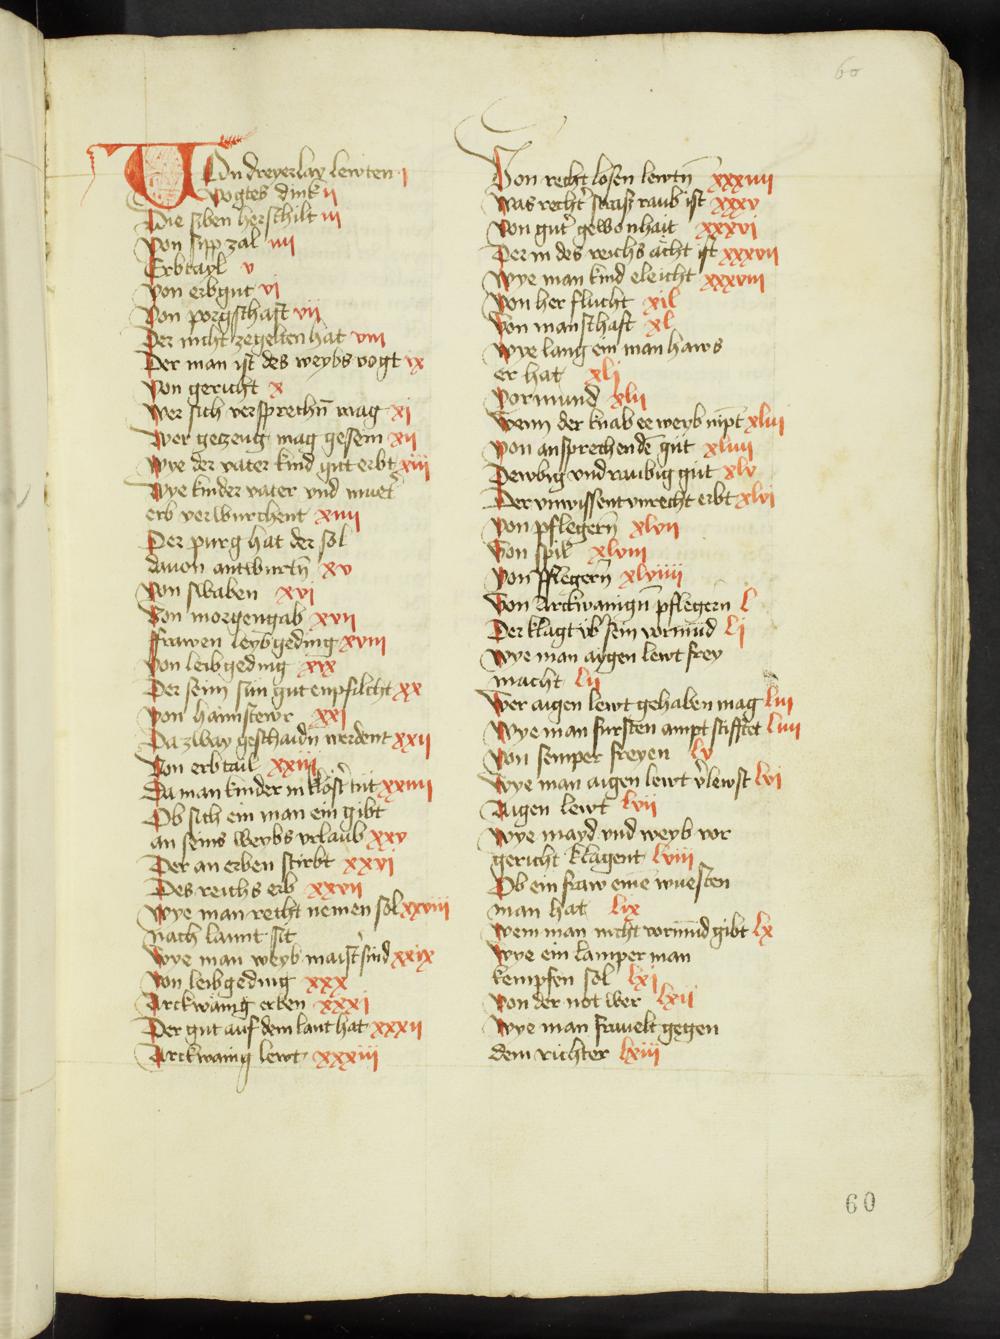 60
Von dreyerlay lewten i
Vogtes dink ii
Die siben herschilt iii
Von sipp zal iiii
Erbtayl v
Von erbgut vi
Von porgschaft vii
Der nicht ze gelten hat viii
Der man ist des weybs vogt ix
Von gericht x
Wer sich versprechn̄ mag xi
Wer gezeug mag gesein xii
Wye der vater kind gut erbt xiii
Wye kinder vater vnd muet̾
erb verwurchent xiiii
Der purg hat der sol
dauon antwurtn̄ xv
Von swaben xvi
Von morgengab xvii
Frawen leybgeding xviii
Von leibgeding xix
Der seim sun gut enpfilcht xx
Von haimstewr xxi
Da zway geschaidn̄ werdent xxii
Von erbtail xxiii
Da man kinder in klost̾ tut xxiiii
Ob sich ein man ein gibt
an seins weybs vrlaub xxv
Der an erben stirbt xxvi
Des reichs erb xxvii
Wye man recht nemen sol xxviii
nach lannt sit
Wye man weyb maist̾ sind xxix
Von leibgeding xxx
Arckwanig erben xxxi
Der gut auf dem lant hat xxxii
Arckwanig lewt xxxiii
Von recht losen lewtn̄ xxxiiii
Was recht̾ strasz raub ist xxxv
Von gut̾ gewonhait xxxvi
Der in des reichs ächt ist xxxvii
Wye man kind eleicht xxxviii
Von her flucht xil
Von manschaft xl
Wye lang ein man haws
er hat xli
Vormund xlii
Wenn der knab ee weyb nīpt xliii
Von ansprechendē gut xliiii
Dewbig vnd raubig gut xlv
Der vnwissent vnrecht erbt xlvi
Von pflegern̄ xlvii
Von spil xlviii
Von pflegern̄ xlviiii
Von Arckwanign̄ pflegern l
Der klagt vb̾ sein vormūd li
Wye man aygen lewt frey
macht lii
Wer aigen lewt gehaben mag liii
Wye man fursten ampt stifftet liiii
Von semper freyen lv
Wye man aigen lewt v̾lewst lvi
Aigen lewt lvii
Wye mayd vnd weyb vor
gericht klagent lviii
Ob ein fraw eine wuesten
man hat lix
Wem man nicht vormūd gibt lx
Wye ein lamper man
kempfen sol lxi
Von der not wer lxii
Wye man frauelt gegen
dem richter lxiii
60